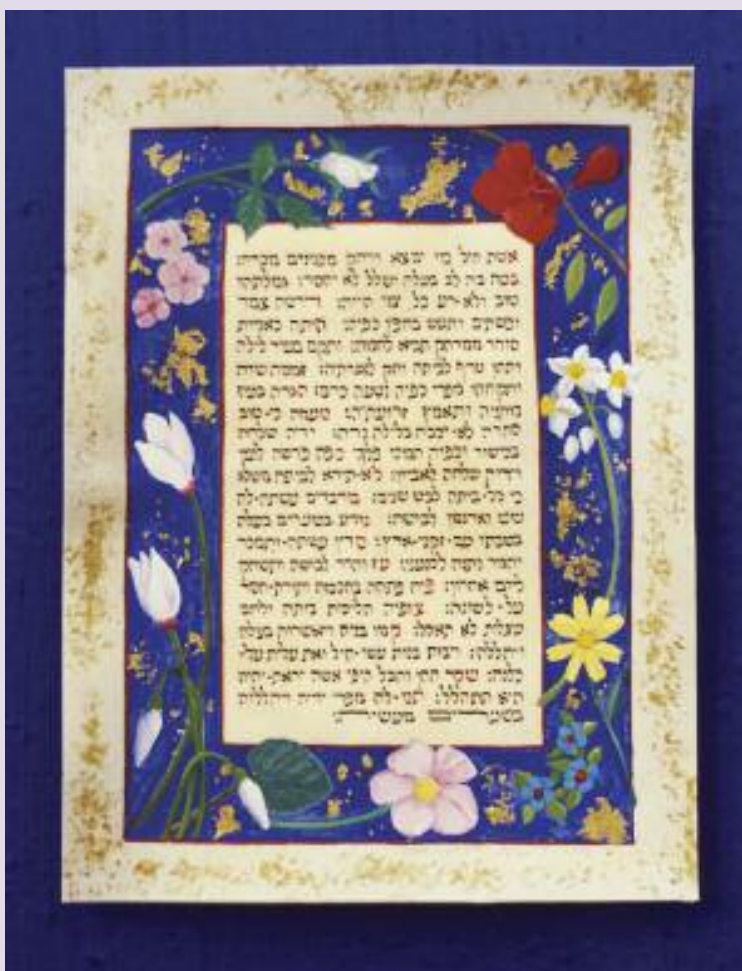 אשת חיל מי ימצא ורחק מפנינים מכרה:
בטח בה לב בעלה ושלל לא יחסר: גמלתהו
טוב ולא-רע כל ימי חייה: דרשה צמר
ופשתים ותעש בחפץ כפיה: היתה כאניות
סוחר ממרחק תביא לחמה: ותקם בעוד לילה
ותתן טרף לביתה וחק לנערתיה: זממה שדה
ותקחהו מפרי כפיה נטעה כרם: חגרה בעוז
מתניה ותאמץ זרועתיה: טעמה כי-טוב
סחרה לא-יכבה בלילה נרה: ידיה שלחה
בכישור וכפיה תמכו פלך: כפה פרשה לעני
וידיה שלחה לאביון: לא-תירא לביתה משלג
כי כל-ביתה לבש שנים: מרבדים עשתה-לה
שש וארגמן לבושה: נודע בשערים בעלה
בשבתו עם-זקני-ארץ: סדין עשתה-ותמכר
וחגור נתנה לכנעני: עז והדר לבושה ותשחק
ליום אחרון: פיה פתחה בחכמה ותורת-חסד
על-לשונה: צופיה הליכות ביתה ולחם
עצלות לא תאכל: קמו בניה ויאשרוה בעלה
ויהללה: רבות בנות עשו-חיל ואת עלית על-
כלנה: שקר החן והבל היפי אשה יראת-יהוה
היא תתהלל: תנו-לה מפרי ידיה ויהללוה
בשערים מעשיה: